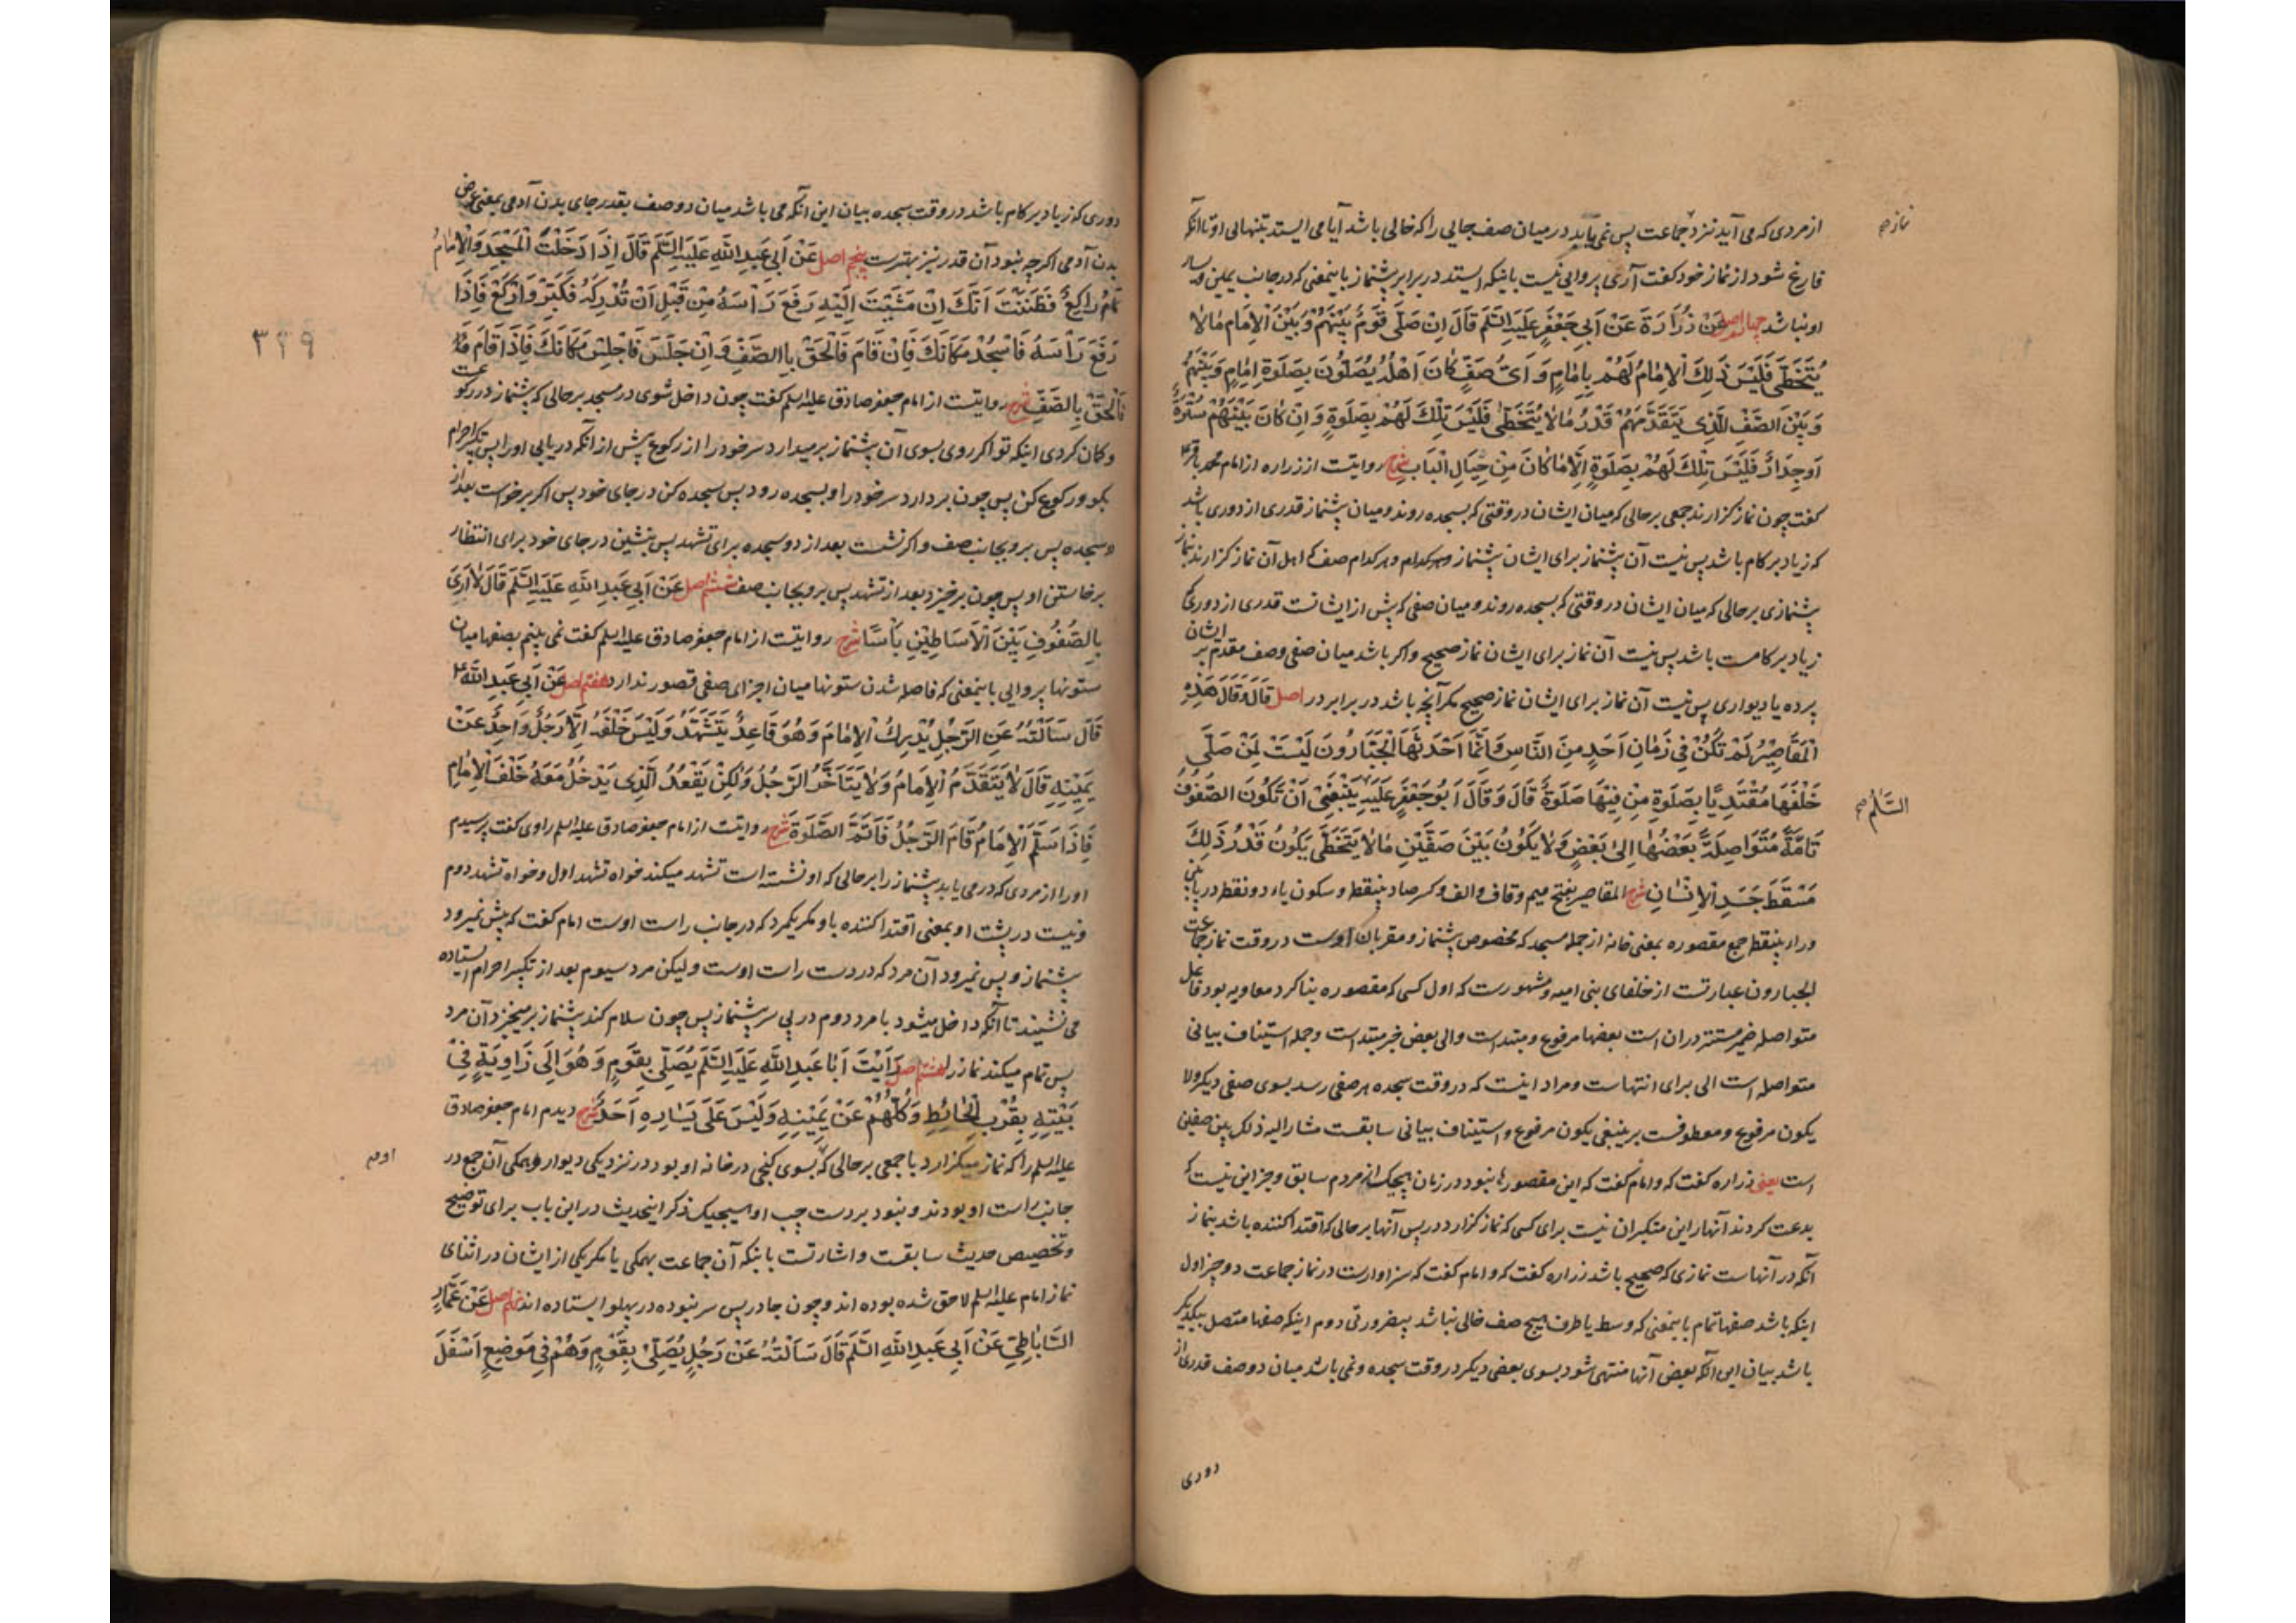 از مردی که می آید نزد جماعت پس نمی یابد در میان صف جایی را که خالی باشد آیا می ایستد بتنهائی او تا آنکه
نماز صح
فارغ شود از نماز خود گفت آری پروایی نیست باینکه ایستد در برابر پیشنماز باینمعنی که در جانب یمین و یسار
او نباشد چهارم اصل عَنْ زُرَارَةَ عَنْ اَبِی جَعْفَرٍ عَلَیْهِ السَّلَم قَالَ اِنْ صَلّٰی قَوْمٌ بَیْنَهُمْ وَبَیْنَ الْاِمَامِ مَالَا
یُتَخَطّٰی فَلَیْسَ ذٰلِكَ الْاِمَامُ لَهُمْ بِاِمَامٍ وَ اَیُّ صَفٍّ كَانَ اَهْلُهُ یُصَلُّونَ بِصَلٰوةِ اِمَامٍ وَبَیْنَهُمْ
وَبَیْنَ الصَّفِّ الَّذِی یَتَقَدَّمُهُمْ قَدْرُ مَالَا یُتَخَطّٰی فَلَیْسَ تِلْكَ لَهُمْ بِصَلٰوةٍ وَ اِنْ كَانَ بَیْنَهُمْ سُتْرَةٌ
اَوْ جِدَارٌ فَلَیْسَ تِلْكَ لَهُمْ بِصَلٰوةٍ اِلَّا مَا كَانَ مِنْ حِیَالِ الْبَابِ شرح روایتست از زراره از امام محمد باقر ع
گفت چون نماز گزارند جمعی بر حالی که میان ایشان در وقتی که بسجده روند و میان پیشنماز قدری از دوری باشد
که زیاد بر گام باشد پس نیست آن پیشنماز برای ایشان پیشنماز و هر کدام صف که اهل آن نماز گزارند بنماز
پیشنمازی بر حالی که میان ایشان در وقتی که بسجده روند و میان صفی که پیش از ایشانست قدری از دوری که
زیاد بر گامست باشد پس نیست آن نماز برای ایشان نماز صحیح و اگر باشد میان صفی و صف مقدم بر ایشان
پرده یا دیواری پس نیست آن نماز برای ایشان نماز صحیح مگر آنچه باشد در برابر در اصل قَالَ وَقَالَ هٰذِهِ
الْمَقَاصِیْرُ لَمْ تَكُنْ فِی زَمَانِ اَحَدٍ مِنَ النَّاسِ وَاِنَّمَا اَحْدَثَهَا الْجَبَّارُونَ لَیْسَتْ لِمَنْ صَلّٰی
خَلْفَهَا مُقْتَدِیًا بِصَلٰوةِ مِنْ فِیْهَا صَلٰوةٌ قَالَ وَ قَالَ اَبُو جَعْفَرٍ عَلَیْهِ یَنْبَغِی اَنْ تَكُونَ الصُّفُوفُ
السَّلَم صح
تَامَّةً مُتَوَاصِلَةً بَعْضُهَا اِلٰی بَعْضٍ وَلَا یَكُوْنُ بَیْنَ صَفَّیْنِ مَالَا یُتَخَطّٰی یَكُونُ قَدْرُ ذٰلِكَ
مَسْقَطَ جَسَدِ الْاِنْسَانِ شرح المقاصیر بفتح میم و قاف و الف و کسر صاد بینقط و سکون یاء دو نقط در پایین
و راء بینقط جمع مقصوره بمعنی خانه از جمله مسجد که مخصوص پیشنماز و مقربان اوست در وقت نماز جماعت
الجبارون عبارتست از خلفای بنی امیه و مشهورست که اول کسی که مقصوره بنا کرد معاویه بود فاعل
متواصله ضمیر مستتر در ان است بعضها مرفوع و مبتداست و الی بعض خبر مبتداست و جمله استیناف بیانی
متواصله است الی برای انتهاست و مراد اینست که در وقت سجده هر صفی رسد بسوی صفی دیگر ولا
یکون مرفوع و معطوفست بر ینبغی یکون مرفوع و استیناف بیانی سابقست مشار الیه ذلک بین صفین
است یعنی زراره گفت که و امام گفت که این مقصورها نبود در زمان هیچیک از مردم سابق و جز این نیست که
بدعت کردند آنها را این متکبران نیست برای کسی که نماز گزارد در پس آنها بر حالی که اقتدا کننده باشد بنماز
آنکه در آنهاست نمازی که صحیح باشد زراره گفت که و امام گفت که سزاوارست در نماز جماعت دو چیز اول
اینکه باشد صفها تمام باینمعنی که وسط یا طرف هیچ صف خالی نباشد بیضرورتی دوم اینکه صفها متصل بیکدیگر
باشد بیان این آنکه بعض آنها منتهی شود بسوی بعض دیگر در وقت سجده و نمی باشد میان دو صف قدری از
دوری
دوری که زیاد بر گام باشد در وقت سجده بیان این آنکه می باشد میان دو صف بقدر جای بدن آدمی بمعنی عرض
بدن آدمی اگرچه نبود آن قدر نیز بهترست پنجم اصل عَنْ اَبِی عَبْدِ اللّٰهِ عَلَیْهِ السَّلَم قَالَ اِذَا دَخَلْتَ الْمَسْجِدَ وَالْاِمَامُ
رَاكِعٌ فَظَنَنْتَ اَنَّكَ اِنْ مَشَیْتَ اِلَیْهِ رَفَعَ رَاْسَهُ مِنْ قَبْلِ اَنْ تُدْرِكَهُ فَكَبِّرْ وَارْكَعْ فَاِذَا
رَفَعَ رَاْسَهُ فَاسْجُدْ مَكَانَكَ فَاِنْ قَامَ فَالْحَقْ بِالصَّفِّ وَ اِنْ جَلَسَ فَاجْلِسْ مَكَانَكَ فَاِذَا قَامَ
۳۲۹
فَالْحَقْ بِالصَّفِّ شرح روایتست از امام جعفر صادق علیه السلم گفت چون داخل شوی در مسجد بر حالی که پیشنماز در رکوعست
و گمان کردی اینکه تو اگر روی بسوی آن پیشنماز بر میدارد سر خود را از رکوع پیش از آنکه دریابی او را پس تکبیر احرام
بگو و رکوع کن پس چون بردارد سر خود را و بسجده رود پس سجده کن در جای خود پس اگر برخواست بعد از
دو سجده پس برو بجانب صف و اگر نشست بعد از دو سجده برای تشهد پس بنشین در جای خود برای انتظار
برخاستن او پس چون برخیزد بعد از تشهد پس برو بجانب صف ششم اصل عَنْ اَبِی عَبْدِ اللّٰهِ عَلَیْهِ السَّلَم قَالَ لَا اَرٰی
بِالصُّفُوفِ بَیْنَ الْاَسَاطِیْنِ بَاْسًا شرح روایتست از امام جعفر صادق علیه السلم گفت نمی بینم بصفها میان
ستونها پروایی باینمعنی که فاصل شدن ستونها میان اجزای صفی قصور ندارد هفتم اصل عَنْ اَبِی عَبْدِ اللّٰهِ ع
قَالَ سَاَلْتُهُ عَنِ الرَّجُلِ یُدْرِكُ الْاِمَامَ وَ هُوَ قَاعِدٌ یَتَشَهَّدُ وَلَیْسَ خَلْفَهُ اِلَّا رَجُلٌ وَاحِدٌ عَنْ
یَمِیْنِهِ قَالَ لَا یَتَقَدَّمُ الْاِمَامُ وَلَا یَتَاَخَّرُ الرَّجُلُ وَلٰكِنْ یَقْعُدُ الَّذِی یَدْخُلُ مَعَهُ خَلْفَ الْاِمَامِ
فَاِذَا سَلَّمَ الْاِمَامُ قَامَ الرَّجُلُ فَاَتَمَّ الصَّلٰوةَ شرح روایتست از امام جعفر صادق علیه السلم راوی گفت پرسیدم
او را از مردی که در می یابد پیشنماز را بر حالی که او نشسته است تشهد میکند خواه تشهد اول و خواه تشهد دوم
و نیست در پشت او بمعنی اقتدا کننده باو مگر یکمرد که در جانب راست اوست امام گفت که پیش نمیرود
پیشنماز و پس نمیرود آن مرد که در دست راست اوست و لیکن مرد سیوم بعد از تکبیر احرام ایستاده
می نشیند تا آنکه داخل میشود با مرد دوم در پی سر پیشنماز پس چون سلام کند پیشنماز بر میخیزد آن مرد
پس تمام میکند نماز را هشتم اصل رَاَیْتُ اَبَا عَبْدِ اللّٰهِ عَلَیْهِ السَّلَم یُصَلِّی بِقَوْمٍ وَ هُوَ اِلٰی زَاوِیَةٍ فِی
بَیْتِهِ بِقُرْبِ الْحَائِطِ وَ كُلُّهُمْ عَنْ یَمِیْنِهِ وَلَیْسَ عَلٰی یَسَارِهِ اَحَدٌ شرح دیدم امام جعفر صادق
علیه السلم را که نماز میگزارد با جمعی بر حالی که بسوی کنجی در خانه او بود در نزدیکی دیوار و همگی آن جمع در
جانب راست او بودند و نبود بر دست چپ او هیچیک ذکر اینحدیث در این باب برای توضیح
و تخصیص حدیث سابقست و اشارتست باینکه آن جماعت بهمگی یا مگر یکی از ایشان در اثنای
نماز امام علیه السلم لاحق شده بوده اند و چون جا در پس سر نبوده در پهلو ایستاده اند نهم اصل عَنْ عَمَّارٍ
السَّابَاطِیِّ عَنْ اَبِی عَبْدِ اللّٰهِ السَّلَم قَالَ سَاَلْتُهُ عَنْ رَجُلٍ یُصَلِّی بِقَوْمٍ وَهُمْ فِی مَوْضِعٍ اَسْفَلَ